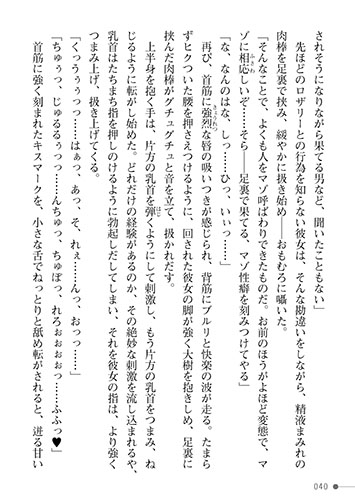 されそうになりながら果てる男など、聞いたこともない」
先ほどのロザリーとの行為を知らない彼女は、そんな勘違いをしながら、精液まみれの
肉棒を足裏で挟み、緩やかに扱き始め――おもむろに囁いた。
「そんなことで、よくも人をマゾ呼ばわりできたものだ。お前のほうがよほど変態で、マ
ゾに相応しいぞ……そら――足裏で果てる、マゾ性癖を刻みつけてやる」
「な、なんのはな、しっ……ひっ、いぃっ……」
再び、首筋に強烈な唇の吸いつきが感じられ、背筋にブルリと快楽の波が走る。たまら
ずヒクついた腰を押さえつけるように、回された彼女の脚が強く大樹を抱きしめ、足裏に
挟んだ肉棒がグチュグチュと音を立て、扱かれだす。
上半身を抱く手は、片方の乳首を弾くようにして刺激し、もう片方の乳首をつまみ、ね
じるように転がし始めた。どれだけの経験があるのか、その絶妙な刺激を流し込まれるや、
乳首はたちまち指を押しのけるように勃起しだしてしまい、それを彼女の指は、より強く
つまみ上げ、扱き上げてくる。
「くっうぅっっ……はぁっ、あっ、そ、れぇ……んっ、おっっ……」
「ちゅぅっ、じゅるるぅっっ……んちゅっ、ちゅぽっ、れろぉぉぉっっ……ふふっ♥」
首筋に強く刻まれたキスマークを、小さな舌でねっとりと舐め転がされると、迸る甘い
040